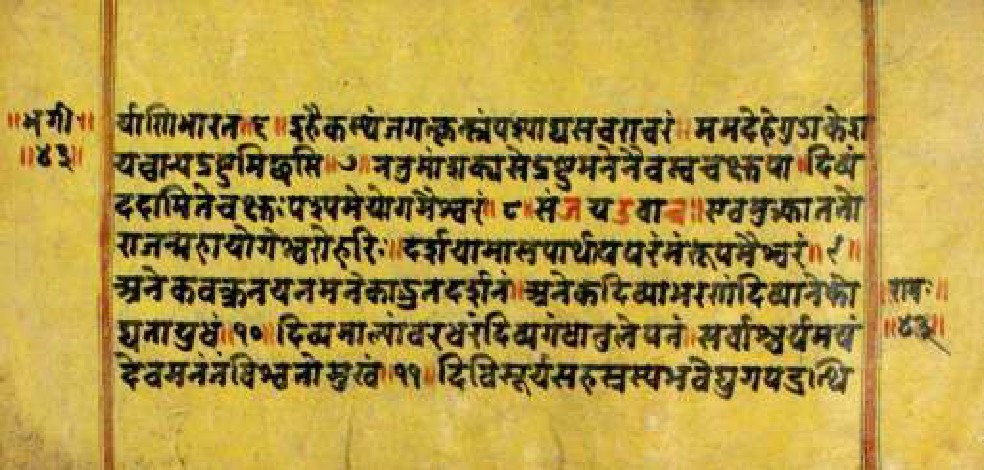 ॥भगी॥
॥४३॥
र्याणिभारत॥६॥इहैकस्थंजगत्कृत्स्नंपश्याद्यसचराचरं॥ममदेहेगुडाकेश
यच्चान्यद्द्रष्टुमिच्छसि॥७॥नतुमांशक्यसेद्रष्टुमनेनैवस्वचक्षुषा॥दिव्यं
ददामितेचक्षुःपश्यमेयोगमैश्वरं॥८॥संजयउवाच॥एवमुक्त्वाततो
राजन्महायोगेश्वरोहरिः॥दर्शयामासपार्थायपरमंरूपमैश्वरं॥९
अनेकवक्त्रनयनमनेकाद्भुतदर्शनं॥अनेकदिव्याभरणंदिव्यानेको
द्यतायुधं॥१०॥दिव्यमाल्यांवरधरंदिव्यगंधानुलेपनं॥सर्वाश्चर्यमयं
देवमनंतंविश्वतोमुखं॥११॥दिविसूर्यसहस्रस्यभवेद्युगपदुत्थि
रामः
॥४३॥